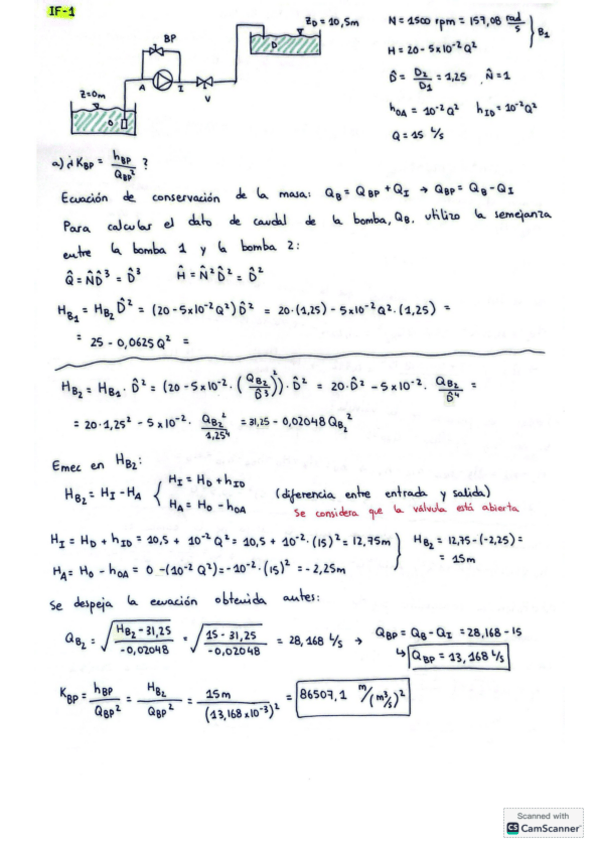 IF-1
BP
A
I
V
Z=0m
O
Z_D = 10,5m
D
N = 1500 rpm = 157,08 rad/s } B_1
H = 20 - 5x10^-2 Q^2
D̂ = D_2/D_1 = 1,25 , N̂ = 1
h_OA = 10^-2 Q^2 h_ID = 10^-2 Q^2
Q = 15 L/s
a) ¿ K_BP = h_BP/Q_BP^2 ?
Ecuación de conservación de la masa: Q_B = Q_BP + Q_I → Q_BP = Q_B - Q_I
Para calcular el dato de caudal de la bomba, Q_B, utilizo la semejanza
entre la bomba 1 y la bomba 2:
Q̂ = N̂D̂^3 = D̂^3 Ĥ = N̂^2 D̂^2 = D̂^2
H_B1 = H_B2 D̂^2 = (20 - 5x10^-2 Q^2) D̂^2 = 20·(1,25) - 5x10^-2 Q^2·(1,25) =
= 25 - 0,0625 Q^2 =
H_B2 = H_B1 · D̂^2 = (20 - 5x10^-2 · (Q_B2/D̂^3)^2) · D̂^2 = 20·D̂^2 - 5x10^-2 · Q_B2/D̂^4 =
= 20·1,25^2 - 5x10^-2 · Q_B2^2/1,25^4 = 31,25 - 0,02048 Q_B2^2
Emec en H_B2:
H_B2 = H_I - H_A { H_I = H_D + h_ID
H_A = H_O - h_OA
(diferencia entre entrada y salida)
Se considera que la válvula está abierta
H_I = H_D + h_ID = 10,5 + 10^-2 Q^2 = 10,5 + 10^-2 · (15)^2 = 12,75m } H_B2 = 12,75 - (-2,25) =
H_A = H_O - h_OA = 0 - (10^-2 Q^2) = -10^-2 · (15)^2 = -2,25m = 15m
Se despeja la ecuación obtenida antes:
Q_B2 = √(H_B2 - 31,25/-0,02048) = √(15 - 31,25/-0,02048) = 28,168 L/s → Q_BP = Q_B - Q_I = 28,168 - 15
↳ Q_BP = 13,168 L/s
K_BP = h_BP/Q_BP^2 = H_B2/Q_BP^2 = 15m/(13,168x10^-3)^2 = 86507,1 m/(m^3/s)^2
Scanned with
CS CamScanner